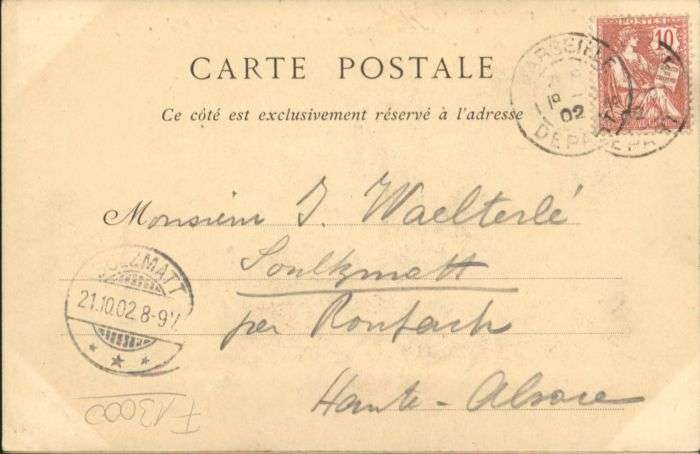 CARTE POSTALE
Ce côté est exclusivement réservé à l'adresse
POSTES
10
MARSEILLE
02
DEPART
Monsieur J. Waelterlé
Soultzmatt
per Roufach
Haute-Alsace
SULZMATT
21.10.02.8-9V
F13000